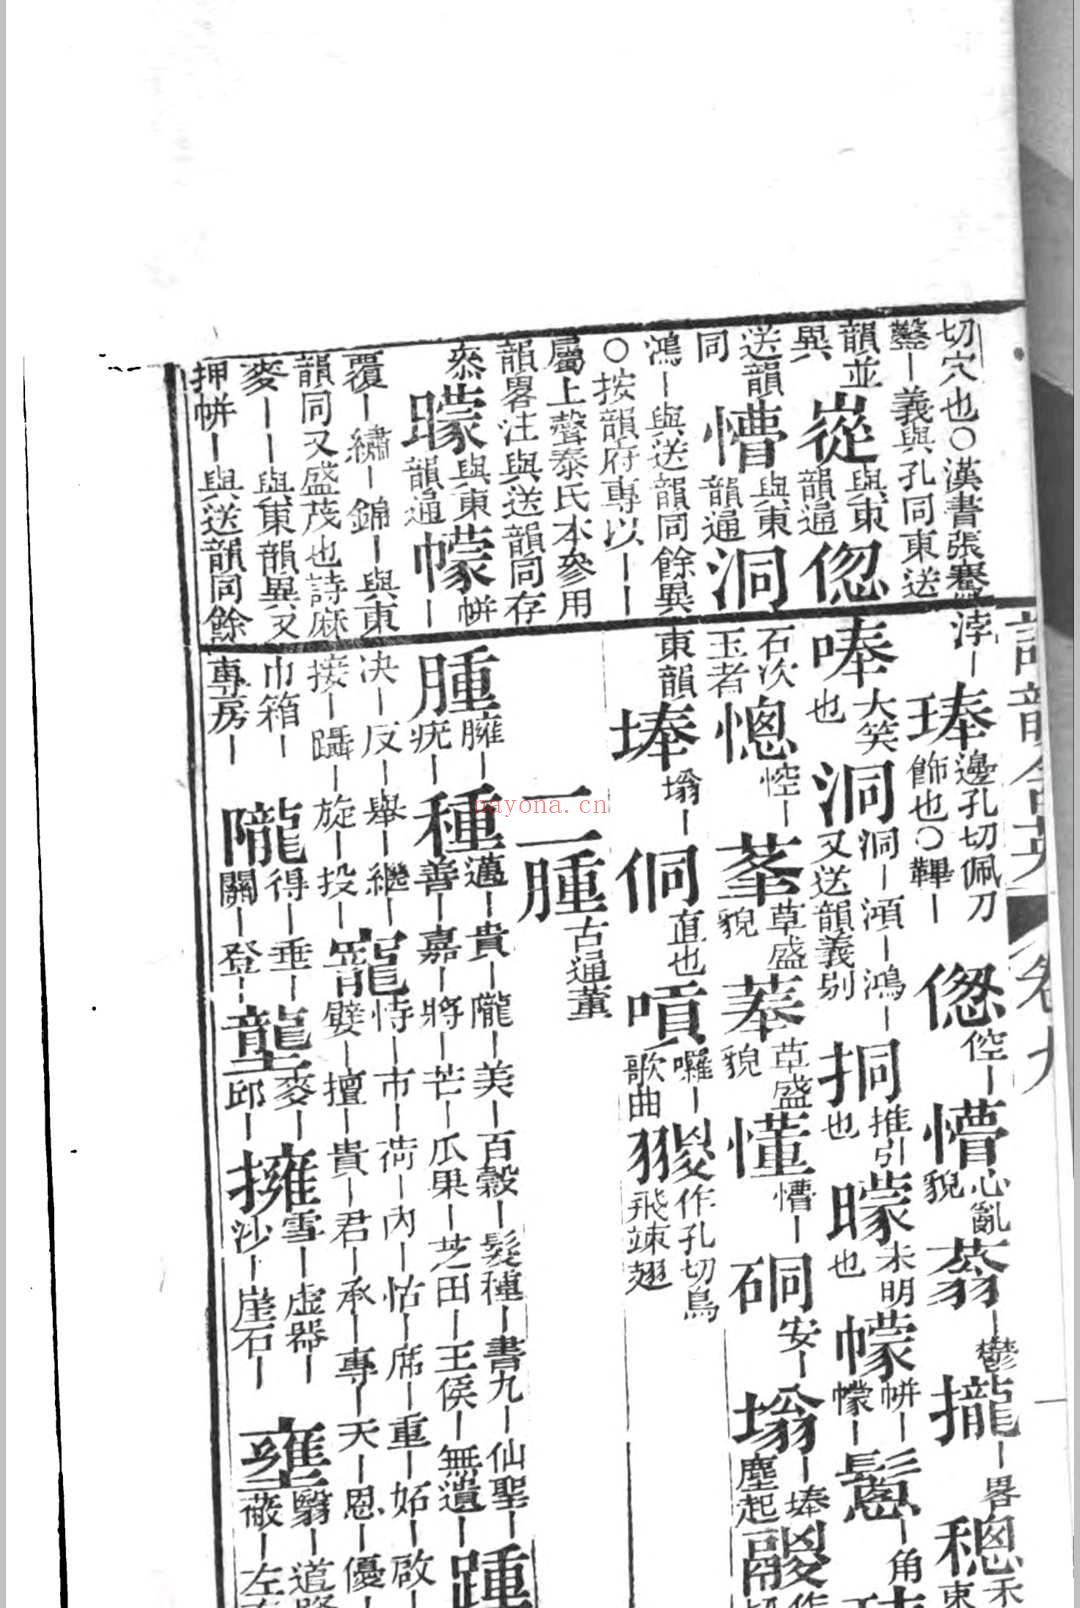 切穴也○漢書張騫
鑿—義與孔同東送
韻並異 嵸 與東韻通 傯
送韻同 懵 與東韻通 洞
鴻—與送韻同餘異
○按韻府專以——
屬上聲泰氏本參用
韻畧注與送韻同存
泰 曚 與東韻通 幪 帡—
覆—繡—錦—與東
韻同又盛茂也詩麻
麥——與東韻異又
押帡—與送韻同餘
詩韻合英 卷九
浡— 琫 邊孔切佩刀飾也○鞸— 傯 倥— 懵 心亂貌 蓊 —鬱 攏 —畧 穗 禾東
唪 大笑也 洞 洞—澒—鴻—又送韻義别 挏 推引也 曚 未明也 幪 帡—幪— 鬆 —角
石次玉者 憁 悾— 菶 草盛貌 菶 草盛貌 懂 懵— 硐 安— 塕 —埲塵起
東韻 埲 塕— 侗 直也 嗊 囉—歌曲 作孔切鳥飛竦翅
二腫 古通董
腫 臃—疣— 種 邁—貴—隴—美—百穀—髮種—書九—仙聖—善—嘉—將—芒—瓜果—芝田—王侯—無遺— 踵
决—反—舉—繼—接—躡—旋—投— 寵 恃—市—荷—內—怙—席—重—妬—啟—嬖—擅—貴—君—承—專—天—恩—優—
巾箱—專房— 隴 得—垂—關—登— 壟 麥—邱— 擁 雪—虛器—沙—崖石— 壅 翳—道路蔽—左
nayona.cn